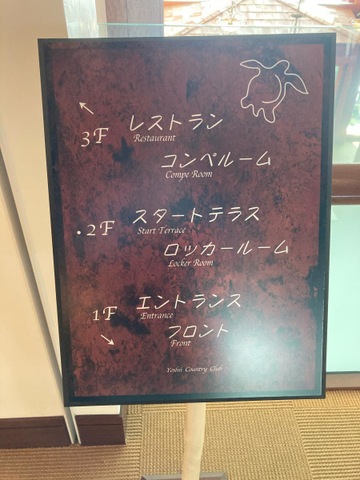 3F レストラン
Restaurant
コンペルーム
Compe Room
.2F スタートテラス
Start Terrace
ロッカールーム
Locker Room
1F エントランス
Entrance
フロント
Front
Country Club